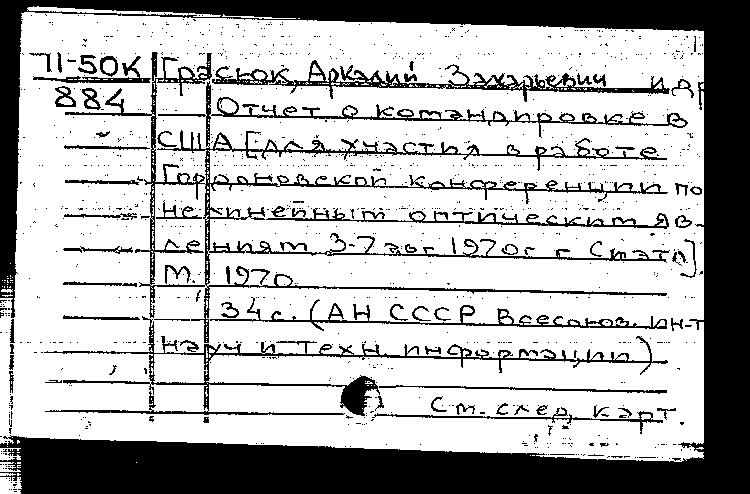 71-50К Грасюк, Аркадий Захарьевич и др
884 Отчет о командировке в
США [для участия в работе
Гордоновской конференции по
нелинейным оптическим яв-
лениям 3-7 авг 1970г г Смэта].
М. 1970.
34с. (АН СССР Всесоюз. ин-т
науч и техн. информации)
См. след. карт.